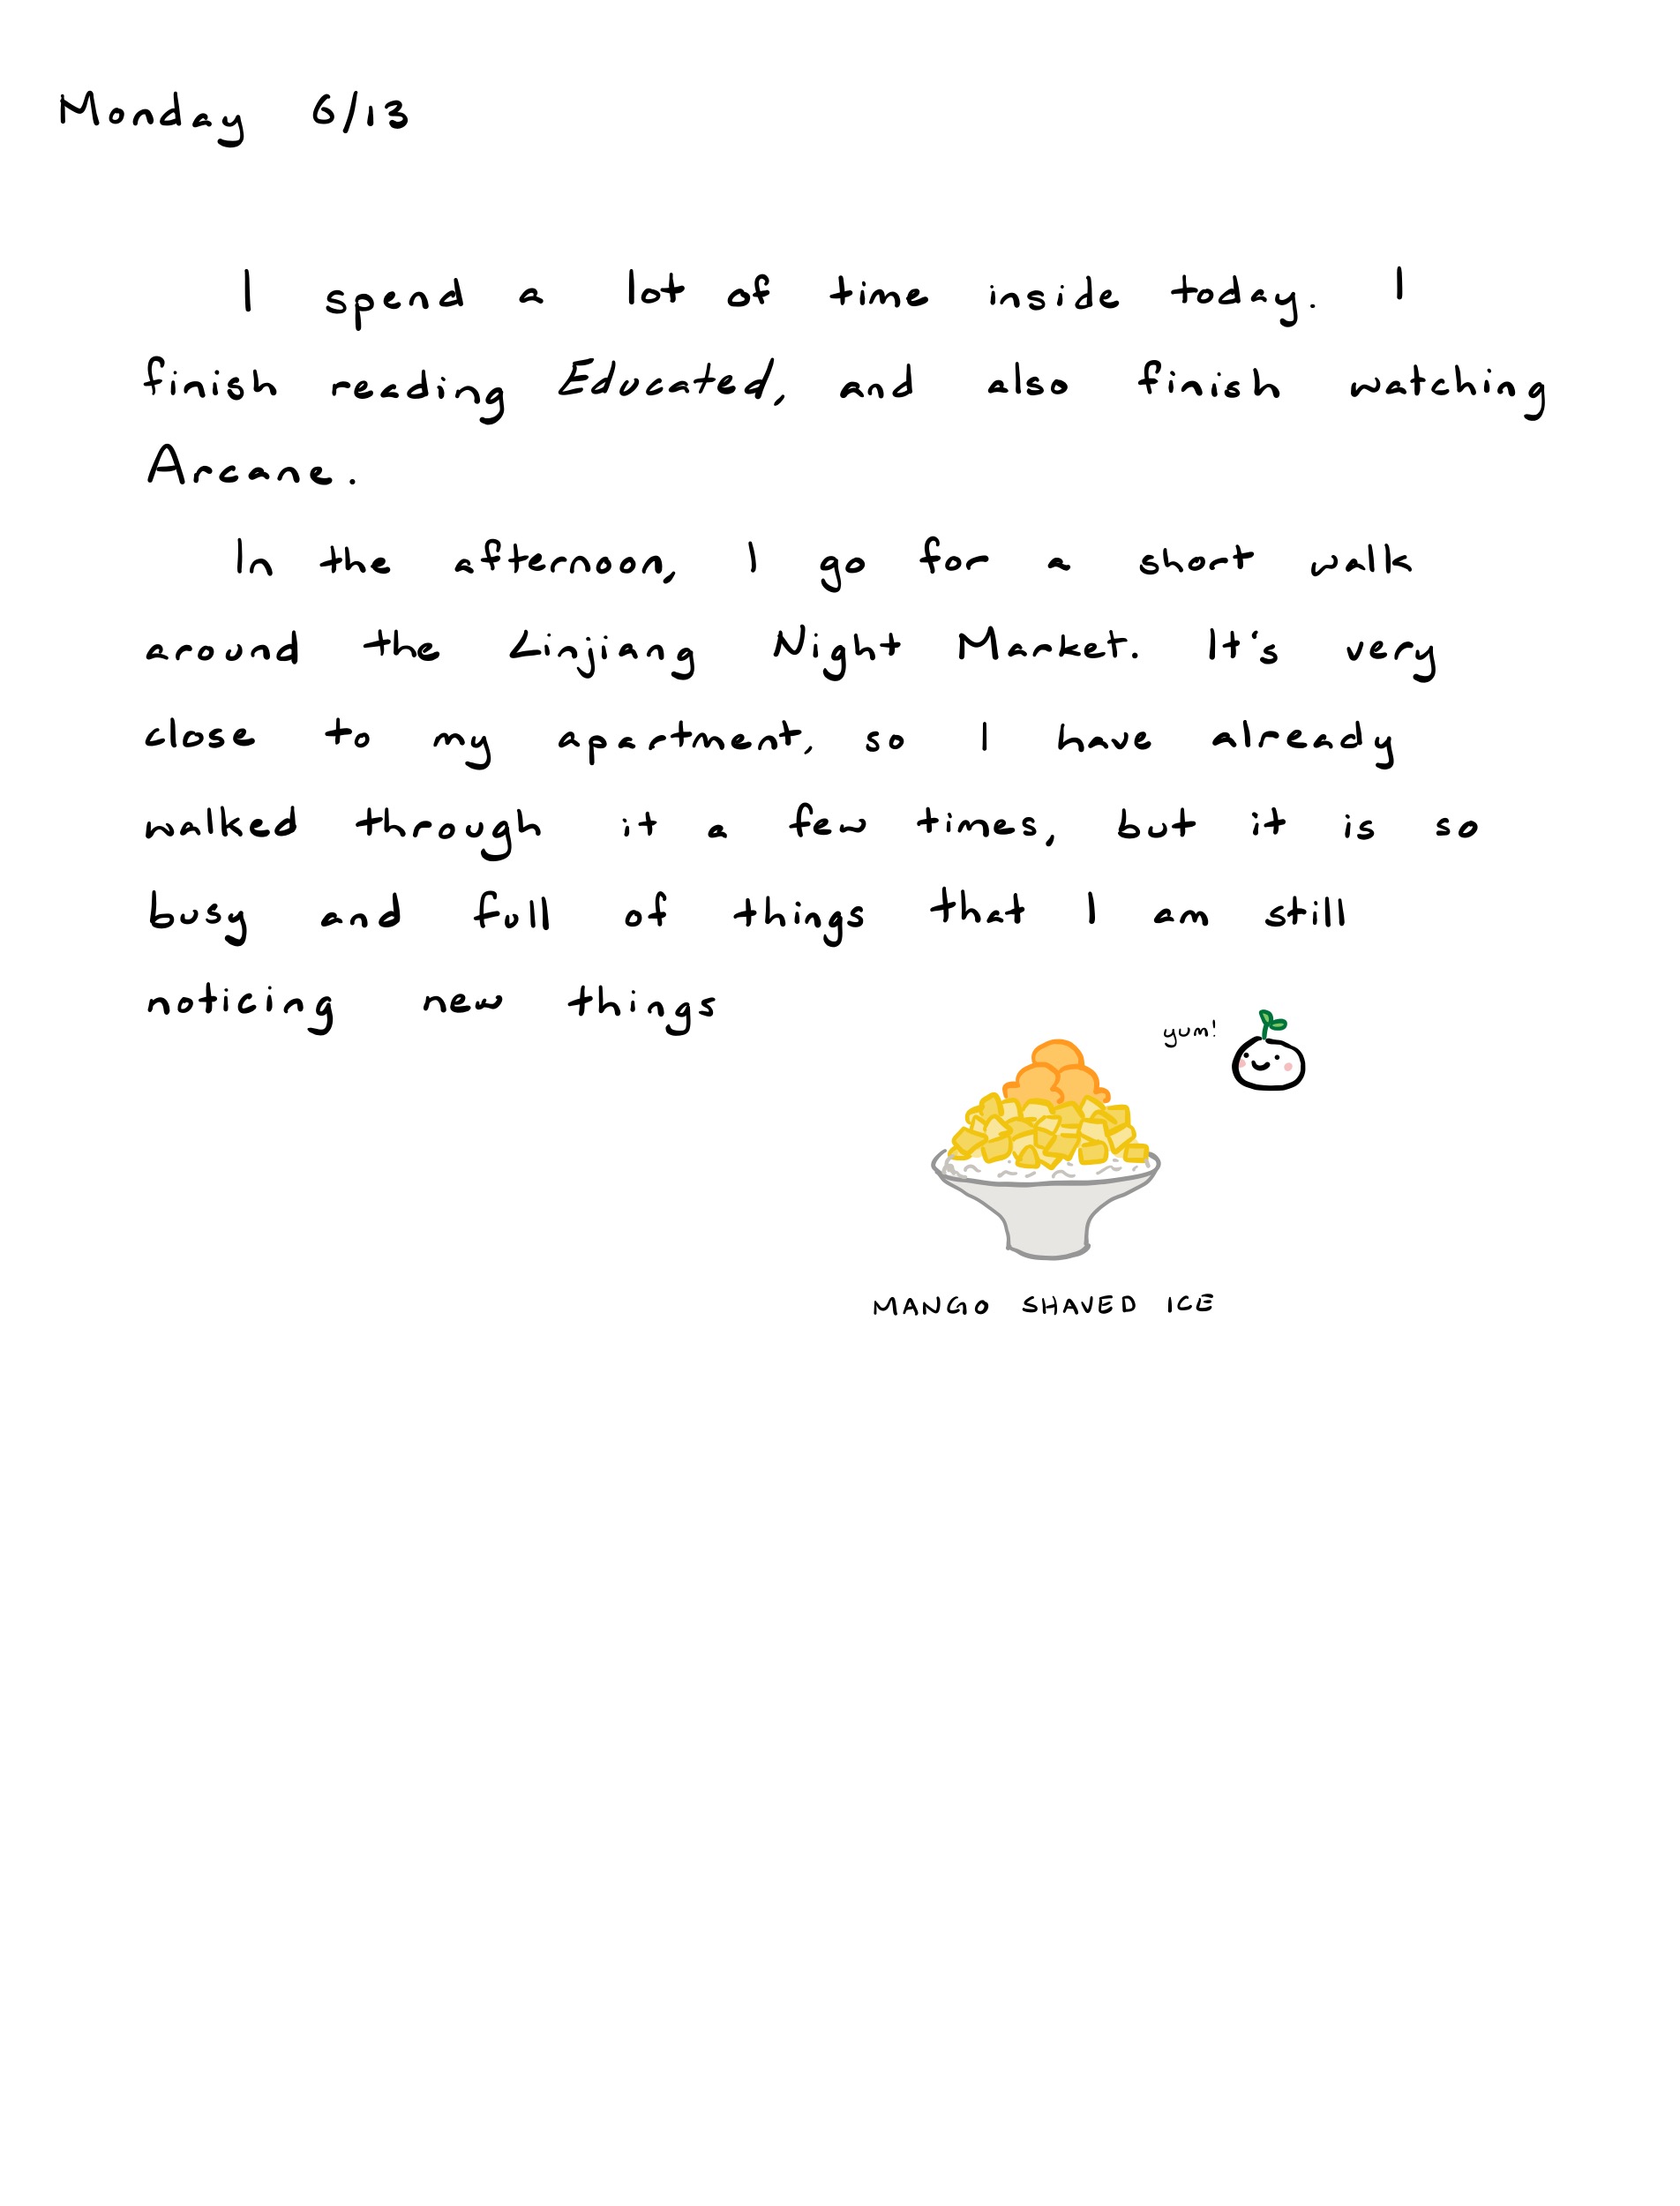 Monday 6/13
I spend a lot of time inside today. I
finish reading Educated, and also finish watching
Arcane.
In the afternoon, I go for a short walk
around the Linjiang Night Market. It's very
close to my apartment, so I have already
walked through it a few times, but it is so
busy and full of things that I am still
noticing new things
yum!
MANGO SHAVED ICE